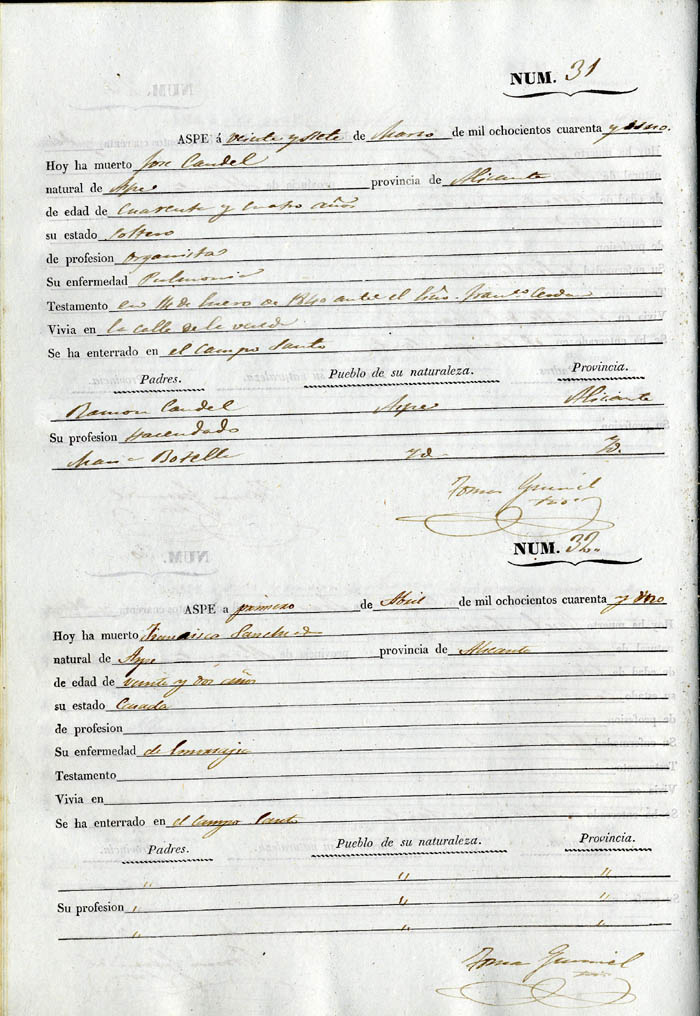 NUM. 31
ASPE á veinte y siete de Marzo de mil ochocientos cuarenta y uno.
Hoy ha muerto Jose Candel
natural de Aspe provincia de Alicante
de edad de cuarenta y cuatro años
su estado soltero
de profesion organista
Su enfermedad Pulmonia
Testamento en 14 de Enero de 1840 ante el Franco. Cerdan
Vivia en la calle de la
Se ha enterrado en el Campo Santo
Padres. Pueblo de su naturaleza. Provincia.
Ramon Candel Aspe Alicante
Su profesion Hacendado
Maria Botella Yd. Yd.
Tomas
NUM. 32
ASPE a primero de Abril de mil ochocientos cuarenta y uno
Hoy ha muerto Francisca Sanchez
natural de Aspe provincia de Alicante
de edad de veinte y dos años
su estado Casada
de profesion
Su enfermedad de
Testamento
Vivia en
Se ha enterrado en el Campo Santo
Padres. Pueblo de su naturaleza. Provincia.
„ „ „
Su profesion „ „ „
„ „ „
Tomas